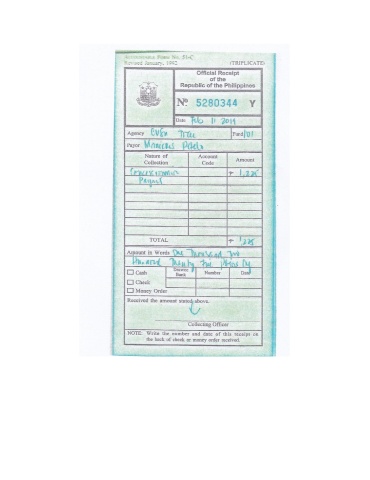 Accountable Form No. 51-C
Revised January, 1992 (TRIPLICATE)
Official Receipt
of the
Republic of the Philippines
№ 5280344 Y
Date Feb 11 2019
Agency Fund 101
Payor
Nature of Collection Account Code Amount
1,225
TOTAL 1,225
Amount in Words One Thousand Two
Hundred Twenty Five Pesos Only
Cash Drawee Bank Number Date
Check
Money Order
Received the amount stated above.
Collecting Officer
NOTE: Write the number and date of this receipt on
the back of check or money order received.